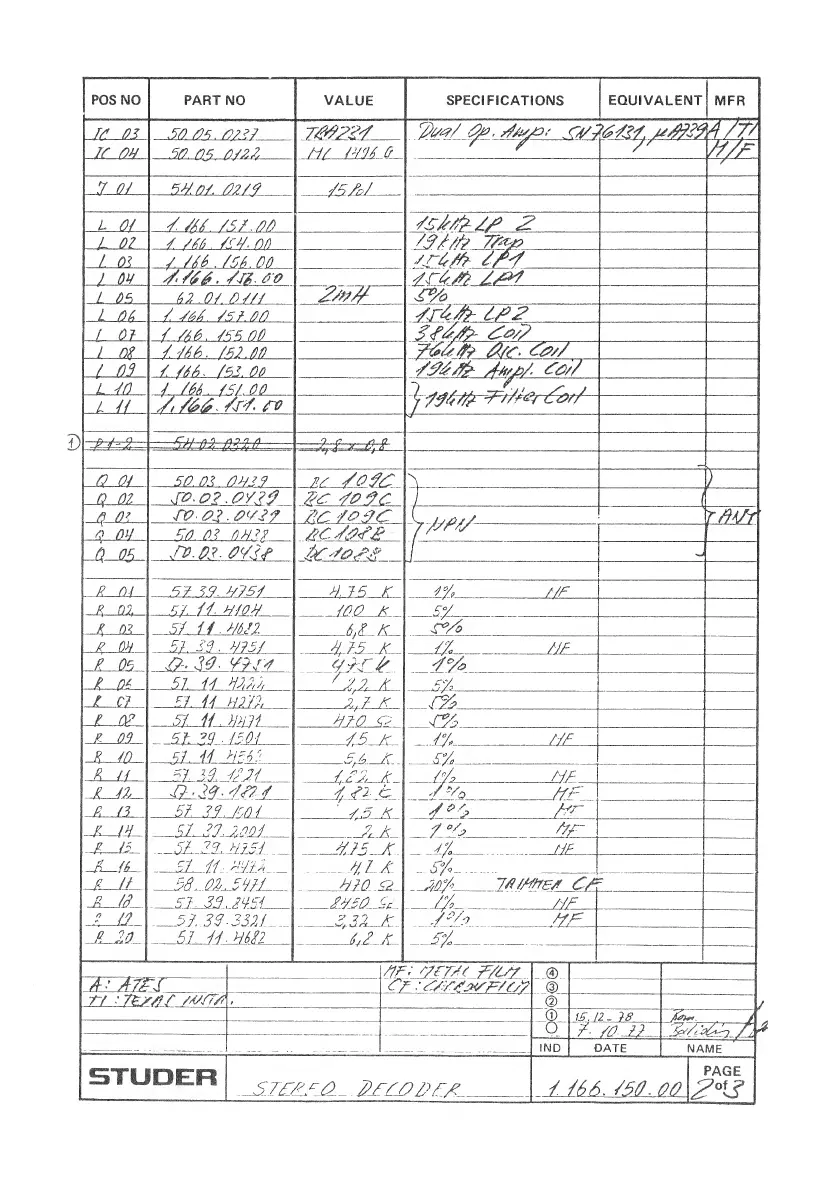 POS NO PART NO VALUE SPECIFICATIONS EQUIVALENT MFR
IC 03 50.05.0237 TBA231 Dual Op. Amp: SN76131, µA739 A/TI
IC 04 50.05.0122 MC 1496 G M/F
J 01 54.01.0219 15 Pol
L 01 1.166.157.00 15kHz LP 2
L 02 1.166.154.00 19kHz Trap
L 03 1.166.156.00 15kHz LP1
L 04 1.166.156.00 15kHz LP1
L 05 62.01.0111 2mH 5%
L 06 1.166.157.00 15kHz LP2
L 07 1.166.155.00 38kHz Coil
L 08 1.166.152.00 76kHz Osc. Coil
L 09 1.166.153.00 19kHz Ampl. Coil
L 10 1.166.151.00
L 11 1.166.151.00 19kHz Filter Coil
① P1-2 54.02.0320 2,8 x 0,8
Q 01 50.03.0439 BC 109C
Q 02 50.03.0439 BC 109C
Q 03 50.03.0439 BC 109C NPN ANT
Q 04 50.03.0438 BC 108B
Q 05 50.03.0438 BC 108B
R 01 57.39.4751 4,75 K 1% MF
R 02 57.11.4104 100 K 5%
R 03 57.11.4682 6,8 K 5%
R 04 57.39.4751 4,75 K 1% MF
R 05 57.39.4751 4,75 K 1%
R 06 57.11.4222 2,2 K 5%
R 07 57.11.4272 2,7 K 5%
R 08 57.11.4471 470 Ω 5%
R 09 57.39.1501 1,5 K 1% MF
R 10 57.11.4562 5,6 K 5%
R 11 57.39.1821 1,82 K 1% MF
R 12 57.39.1821 1,82 K 1% MF
R 13 57.39.1501 1,5 K 1% MF
R 14 57.39.2001 2 K 1% MF
R 15 57.39.4751 4,75 K 1% MF
R 16 57.11.4472 4,7 K 5%
R 17 58.02.5471 470 Ω 20% TRIMMER CF
R 18 57.39.8451 8450 Ω 1% MF
R 19 57.39.3321 3,32 K 1% MF
R 20 57.11.4682 6,8 K 5%
MF: METAL FILM ④
A: ATES CF: CARBON FILM ③
TI: TEXAS INSTR. ②
① 15.12.78
○ 7.10.77
IND DATE NAME
STUDER STEREO DECODER 1.166.150.00 PAGE 2 of 3